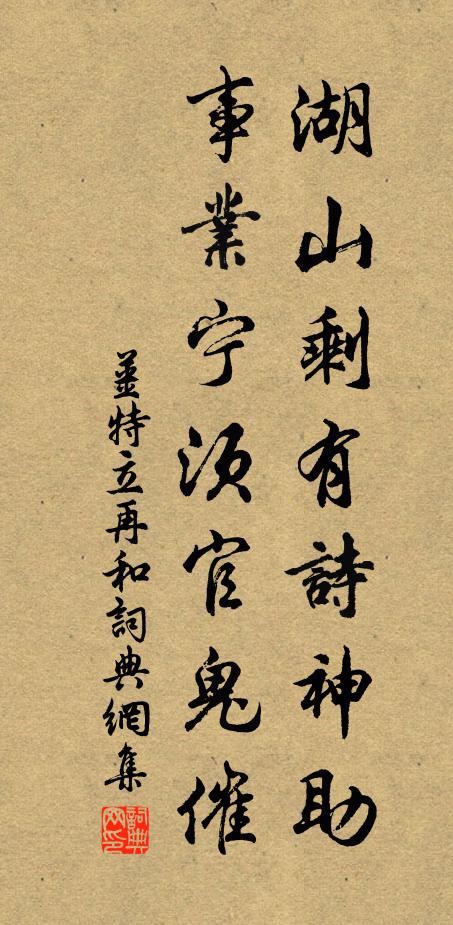 湖山剩有詩神助
事業宁須官鬼催
姜特立再和詞典網集
詞典網印